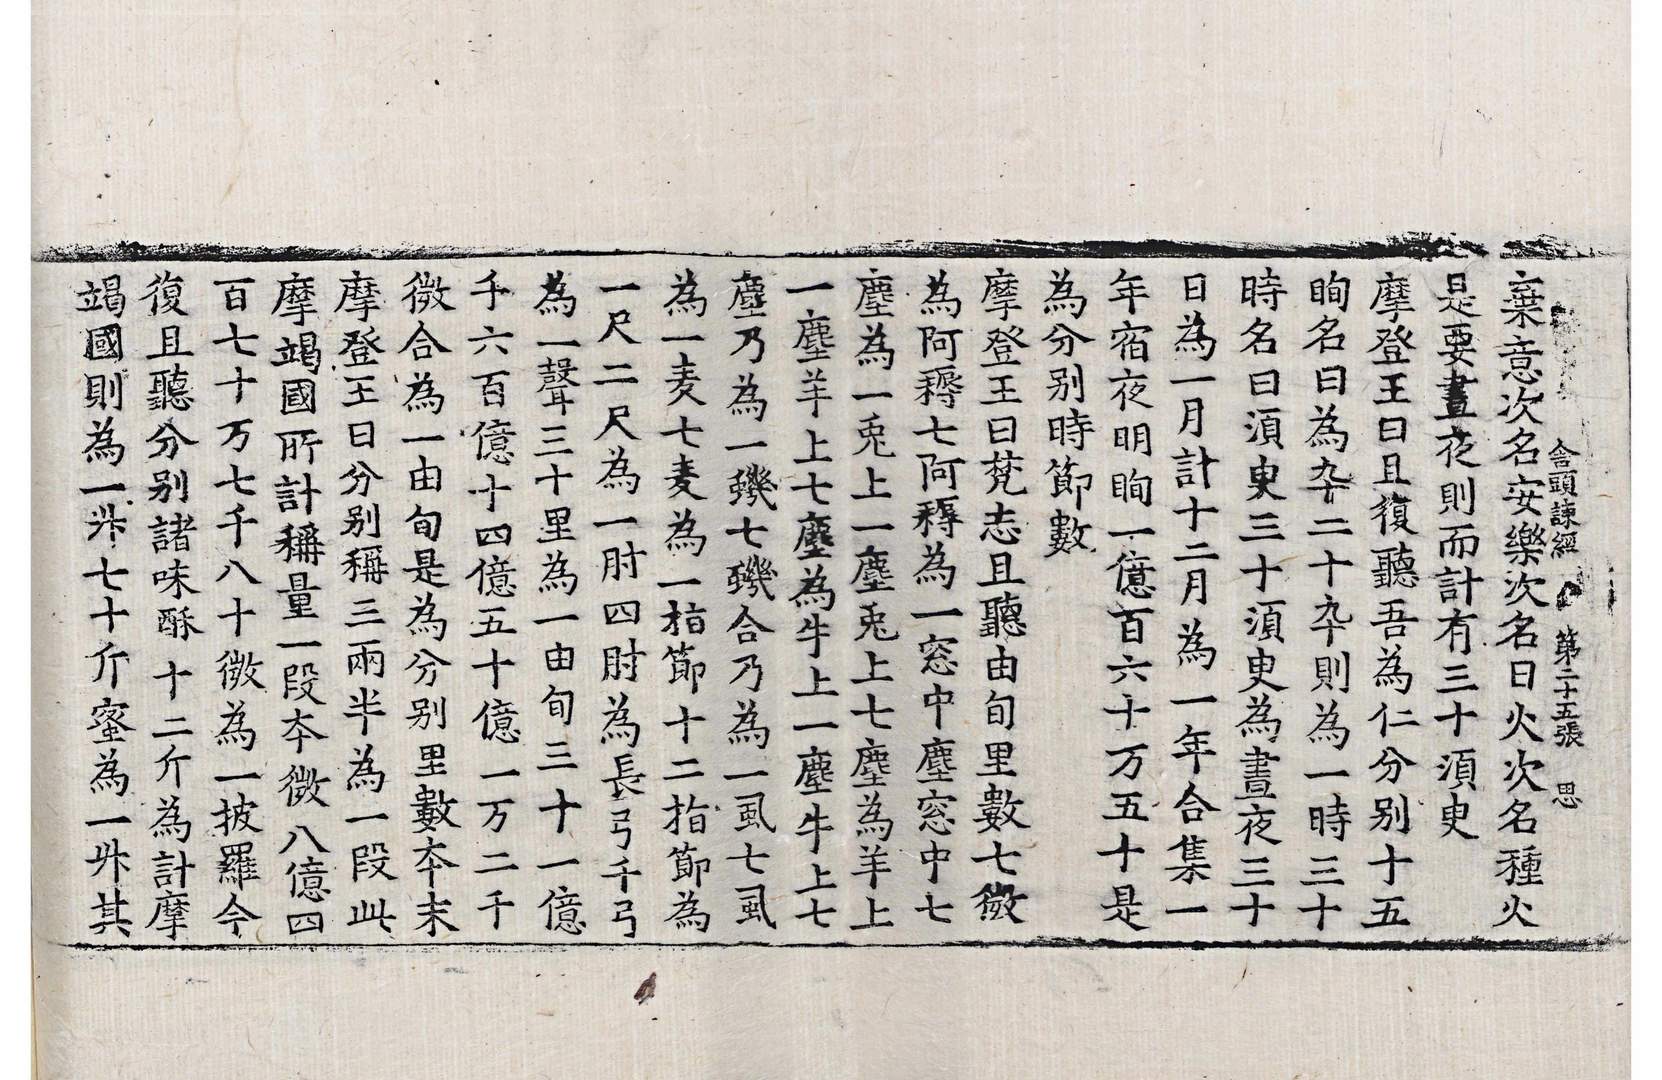 舍頭諫經 第二十五張 思
棄意次名安樂次名日火次名種火
是要晝夜則而計有三十須臾
摩登王曰且復聽吾為仁分别十五
眴名曰為卆二十卆則為一時三十
時名曰須臾三十須臾為晝夜三十
日為一月計十二月為一年合集一
年宿夜明眴一億百六十万五十是
為分别時節數
摩登王曰梵志且聽由旬里數七微
為阿耨七阿耨為一窓中塵窓中七
塵為一兎上一塵兎上七塵為羊上
一塵羊上七塵為牛上一塵牛上七
塵乃為一蟣七蟣合乃為一虱七虱
為一麦七麦為一指節十二指節為
一尺二尺為一肘四肘為長弓千弓
為一聲三十里為一由旬三十一億
千六百億十四億五十億一万二千
微合為一由旬是為分别里數本末
摩登王曰分别稱三兩半為一段此
摩竭國所計稱量一段本微八億四
百七十万七千八十微為一披羅今
復且聽分别諸味酥十二斤為計摩
竭國則為一升七十斤蜜為一升其